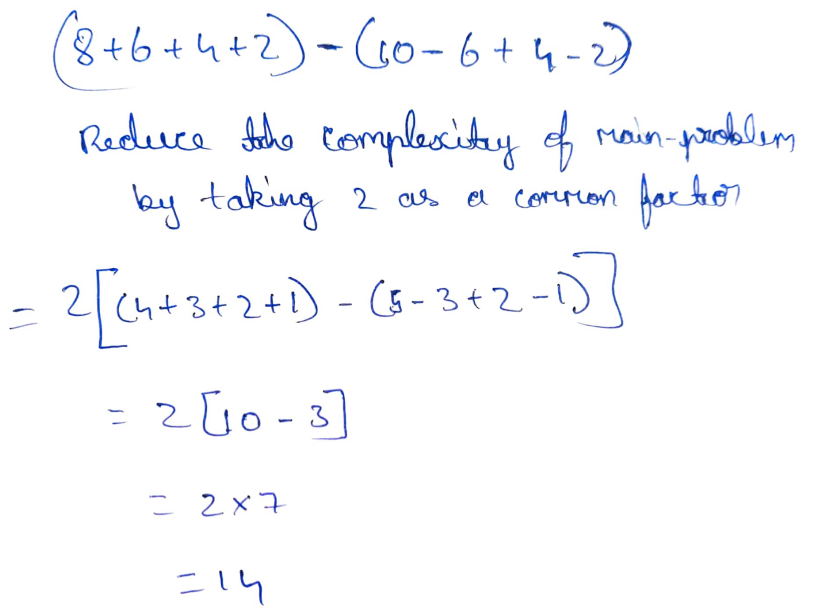 (8+6+4+2)-(10-6+4-2)
Reduce the complexity of main-problem
by taking 2 as a common factor
= 2[(4+3+2+1) - (5-3+2-1)]
= 2[10-3]
= 2×7
= 14